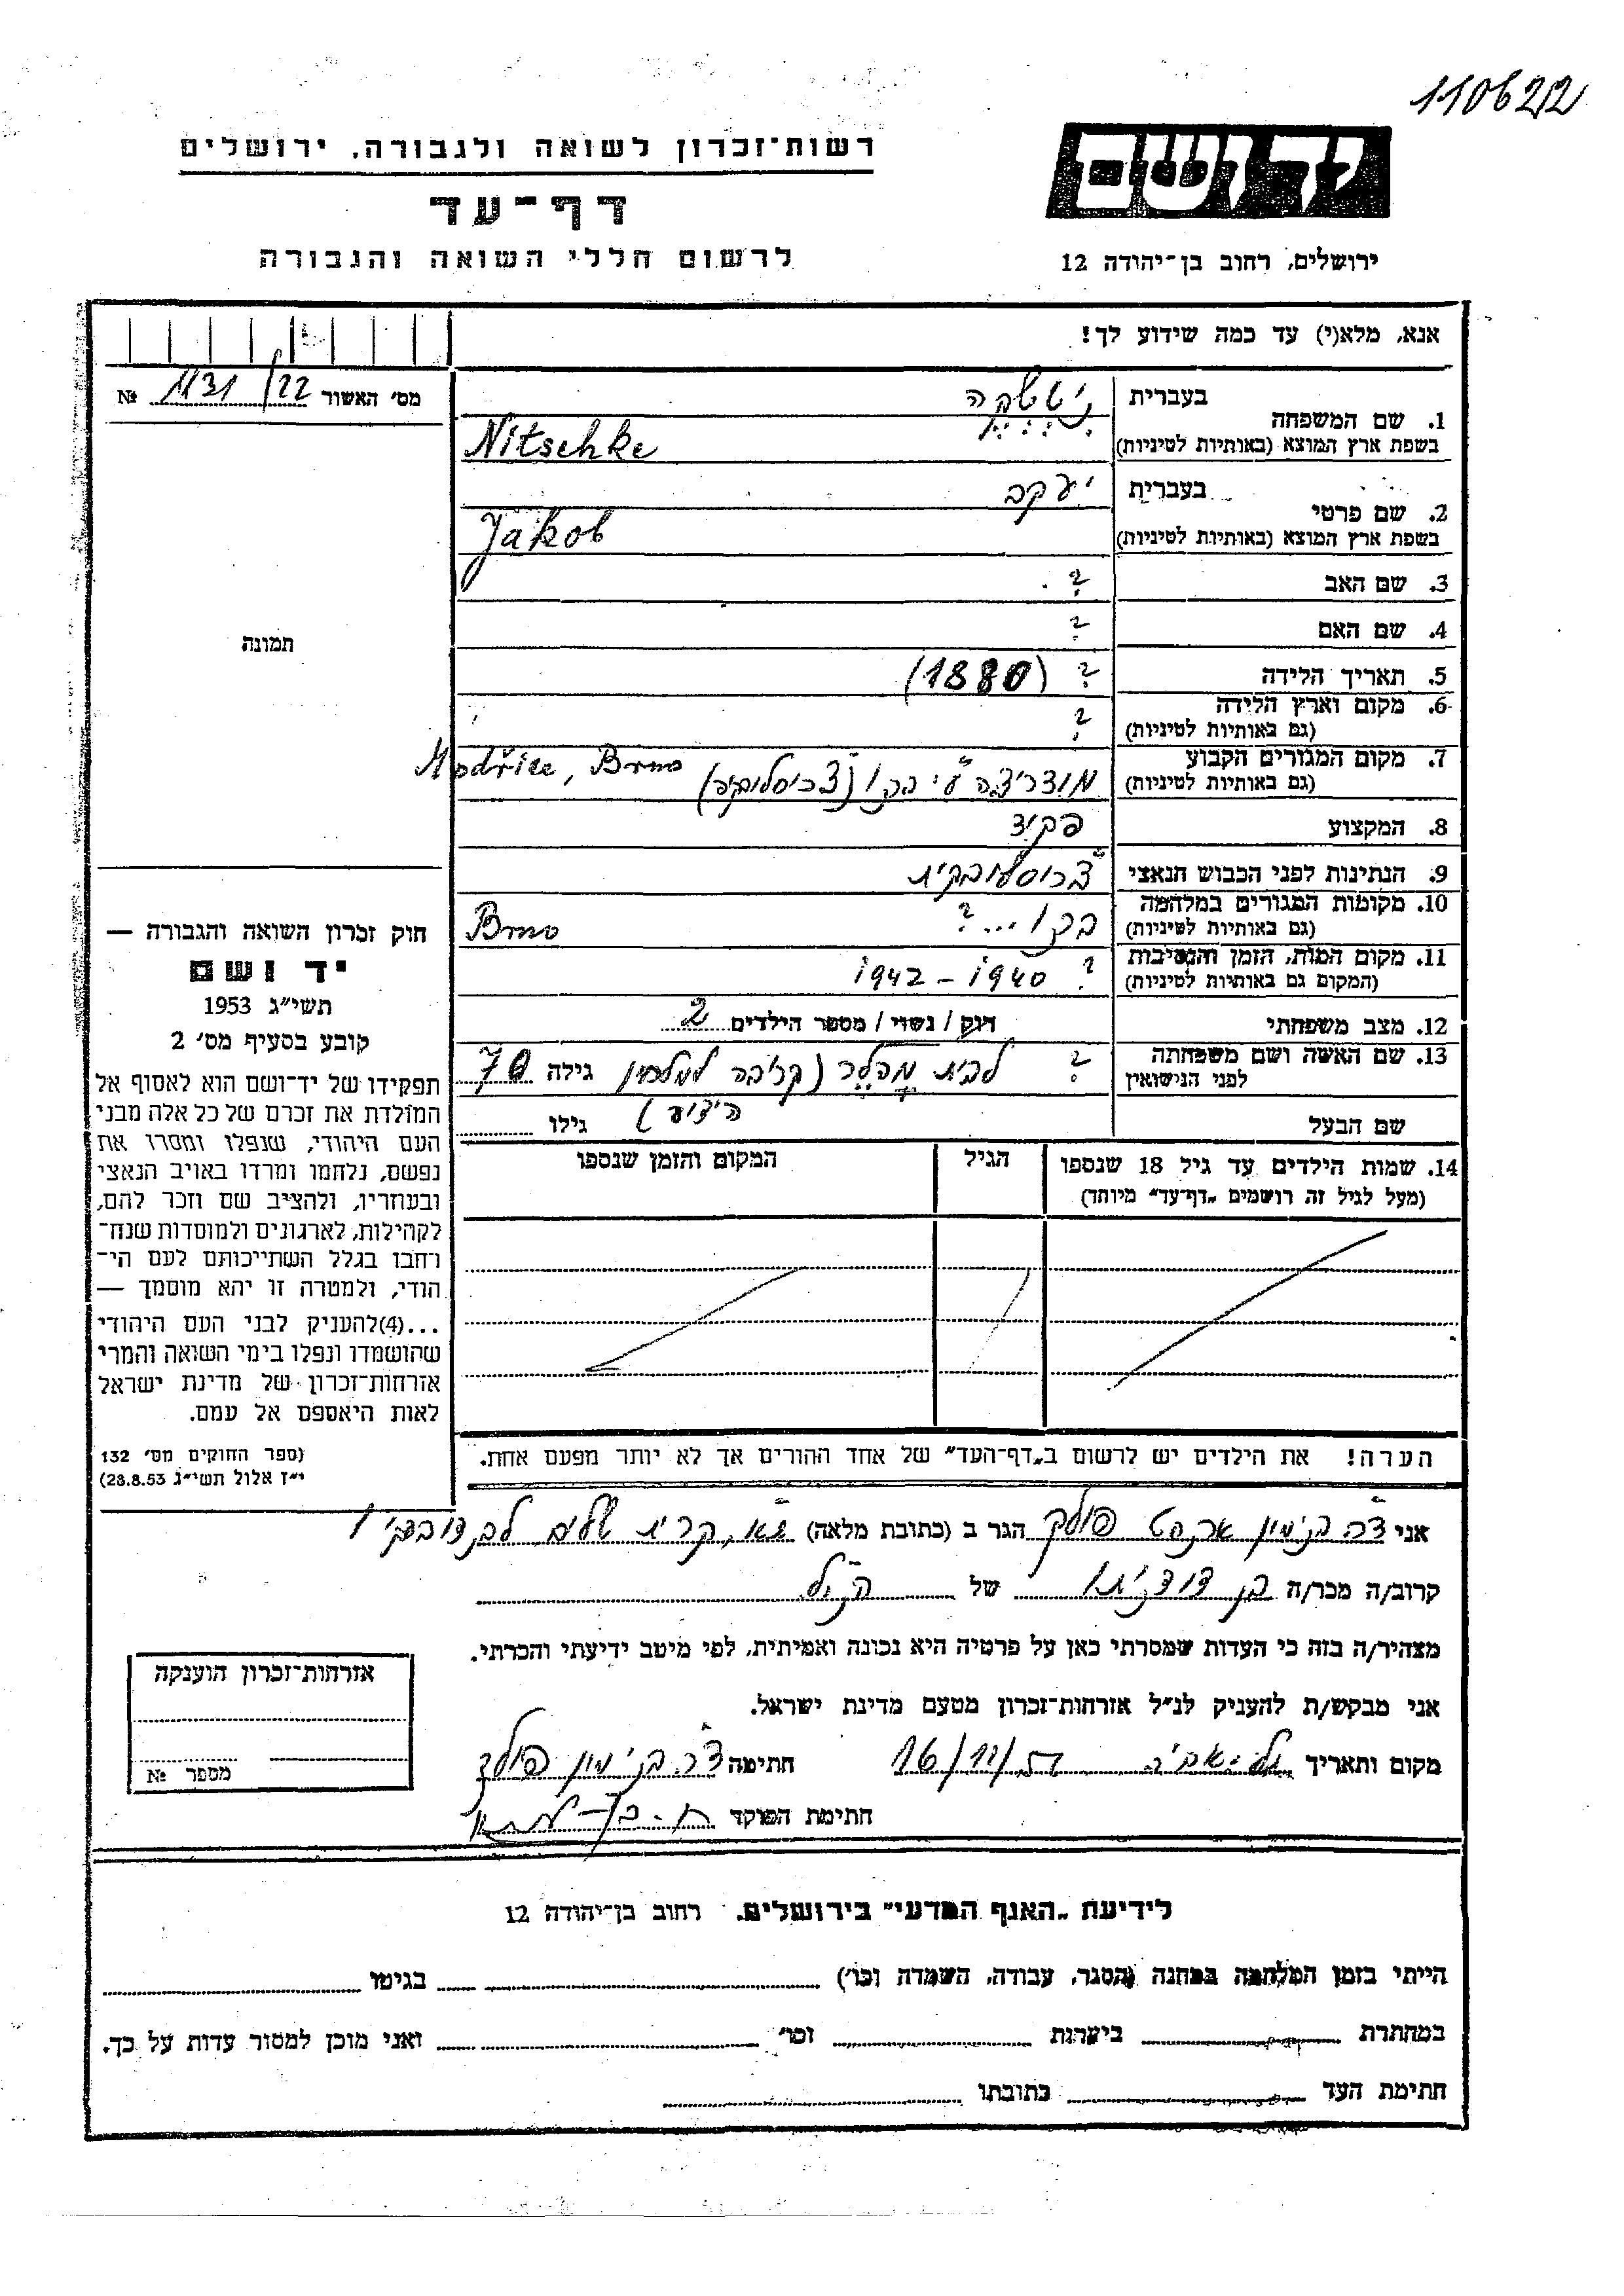 110622
רשות־זכרון לשואה ולגבורה, ירושלים
ידושם
דף־עד
לרשום חללי השואה והגבורה
ירושלים, רחוב בן־יהודה 12
אנא, מלא(י) עד כמה שידוע לך!
מס׳ האשור 1131/22 №
תמונה
1. שם המשפחה
בעברית ניטשקה
בשפת ארץ המוצא (באותיות לטיניות) Nitschke
2. שם פרטי
בעברית יעקב
בשפת ארץ המוצא (באותיות לטיניות) Jakob
3. שם האב ?
4. שם האם ?
5. תאריך הלידה ? (1880)
6. מקום וארץ הלידה ?
(גם באותיות לטיניות)
7. מקום המגורים הקבוע מודריצה ע״י ברנו (צ׳כוסלובקיה) Modřice, Brno
(גם באותיות לטיניות)
8. המקצוע פקיד
9. הנתינות לפני הכבוש הנאצי צ׳כוסלובקית
10. מקומות המגורים במלחמה ברנו ...? Brno
(גם באותיות לטיניות)
11. מקום המות, הזמן והנסיבות ? 1940 – 1942
(המקום גם באותיות לטיניות)
12. מצב משפחתי רווק / נשוי / מספר הילדים 2
13. שם האשה ושם משפחתה ? לבית מהלר (קרובה למלחין גילה 70
לפני הנישואין
הידוע)
שם הבעל גילו
14. שמות הילדים עד גיל 18 שנספו
(מעל לגיל זה רושמים „דף־עד״ מיוחד)
הגיל
המקום והזמן שנספו
הערה! את הילדים יש לרשום ב„דף־העד״ של אחד ההורים אך לא יותר מפעם אחת.
חוק זכרון השואה והגבורה —
יד ושם
תשי״ג 1953
קובע בסעיף מס׳ 2
תפקידו של יד־ושם הוא לאסוף אל
המולדת את זכרם של כל אלה מבני
העם היהודי, שנפלו ומסרו את
נפשם, נלחמו ומרדו באויב הנאצי
ובעוזריו, ולהציב שם וזכר להם,
לקהילות, לארגונים ולמוסדות שנח־
רחבו בגלל השתייכותם לעם הי־
הודי, ולמטרה זו יהא מוסמך —
...(4)להעניק לבני העם היהודי
שהושמדו ונפלו בימי השואה והמרי
אזרחות־זכרון של מדינת ישראל
לאות היאספם אל עמם.
(ספר החוקים מס׳ 132
י״ז אלול תשי״ג 28.8.53)
אני ד״ר בנימין פולק הגר ב (כתובת מלאה) ת״א, קרית שלום
קרוב/ה מכר/ה בן דודניתו של הנ״ל
מצהיר/ה בזה כי העדות שמסרתי כאן על פרטיה היא נכונה ואמיתית, לפי מיטב ידיעתי והכרתי.
אני מבקש/ת להעניק לנ״ל אזרחות־זכרון מטעם מדינת ישראל.
מקום ותאריך תל־אביב 16/11/ חתימה ד״ר בנימין פולק
חתימת הפוקד
אזרחות־זכרון הוענקה
מספר №
לידיעת „האגף המדעי״ בירושלים, רחוב בן־יהודה 12
הייתי בזמן המלחמה במחנה (הסגר, עבודה, השמדה וכו׳) בגיטו
במחתרת ביערות וכו׳ ואני מוכן למסור עדות על כך.
חתימת העד כתובתו